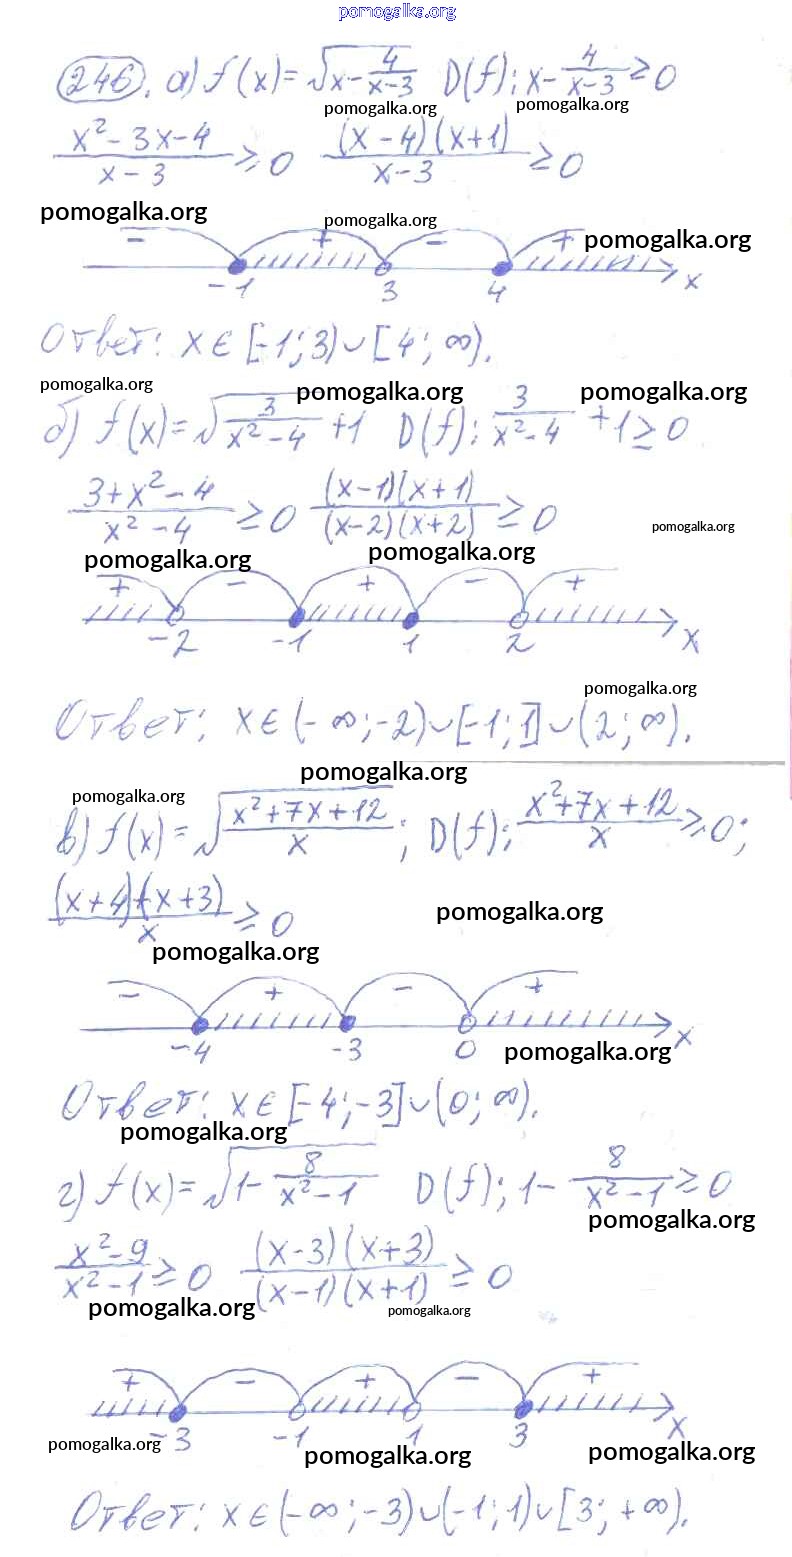 pomogalka.org
246. а) f(x)=√(x-4/(x-3)) D(f): x-4/(x-3)≥0
pomogalka.org pomogalka.org
(x²-3x-4)/(x-3)≥0 ((x-4)(x+1))/(x-3)≥0
pomogalka.org pomogalka.org
- + - + pomogalka.org
-1 3 4 x
Ответ: x∈[-1;3)∪[4;∞).
pomogalka.org pomogalka.org pomogalka.org
б) f(x)=√(3/(x²-4)+1) D(f): 3/(x²-4)+1≥0
(3+x²-4)/(x²-4)≥0 ((x-1)(x+1))/((x-2)(x+2))≥0
pomogalka.org
pomogalka.org pomogalka.org
+ - + - +
-2 -1 1 2 x
pomogalka.org
Ответ: x∈(-∞;-2)∪[-1;1]∪(2;∞).
pomogalka.org
pomogalka.org
в) f(x)=√((x²+7x+12)/x); D(f); (x²+7x+12)/x≥0;
((x+4)(x+3))/x≥0
pomogalka.org
pomogalka.org
- + - +
-4 -3 0 x
pomogalka.org
Ответ: x∈[-4;-3]∪(0;∞).
pomogalka.org
г) f(x)=√(1-8/(x²-1)) D(f); 1-8/(x²-1)≥0
pomogalka.org
(x²-9)/(x²-1)≥0 ((x-3)(x+3))/((x-1)(x+1))≥0
pomogalka.org pomogalka.org
+ - + - +
-3 -1 1 3 x
pomogalka.org pomogalka.org pomogalka.org
Ответ: x∈(-∞;-3)∪(-1;1)∪[3;+∞).